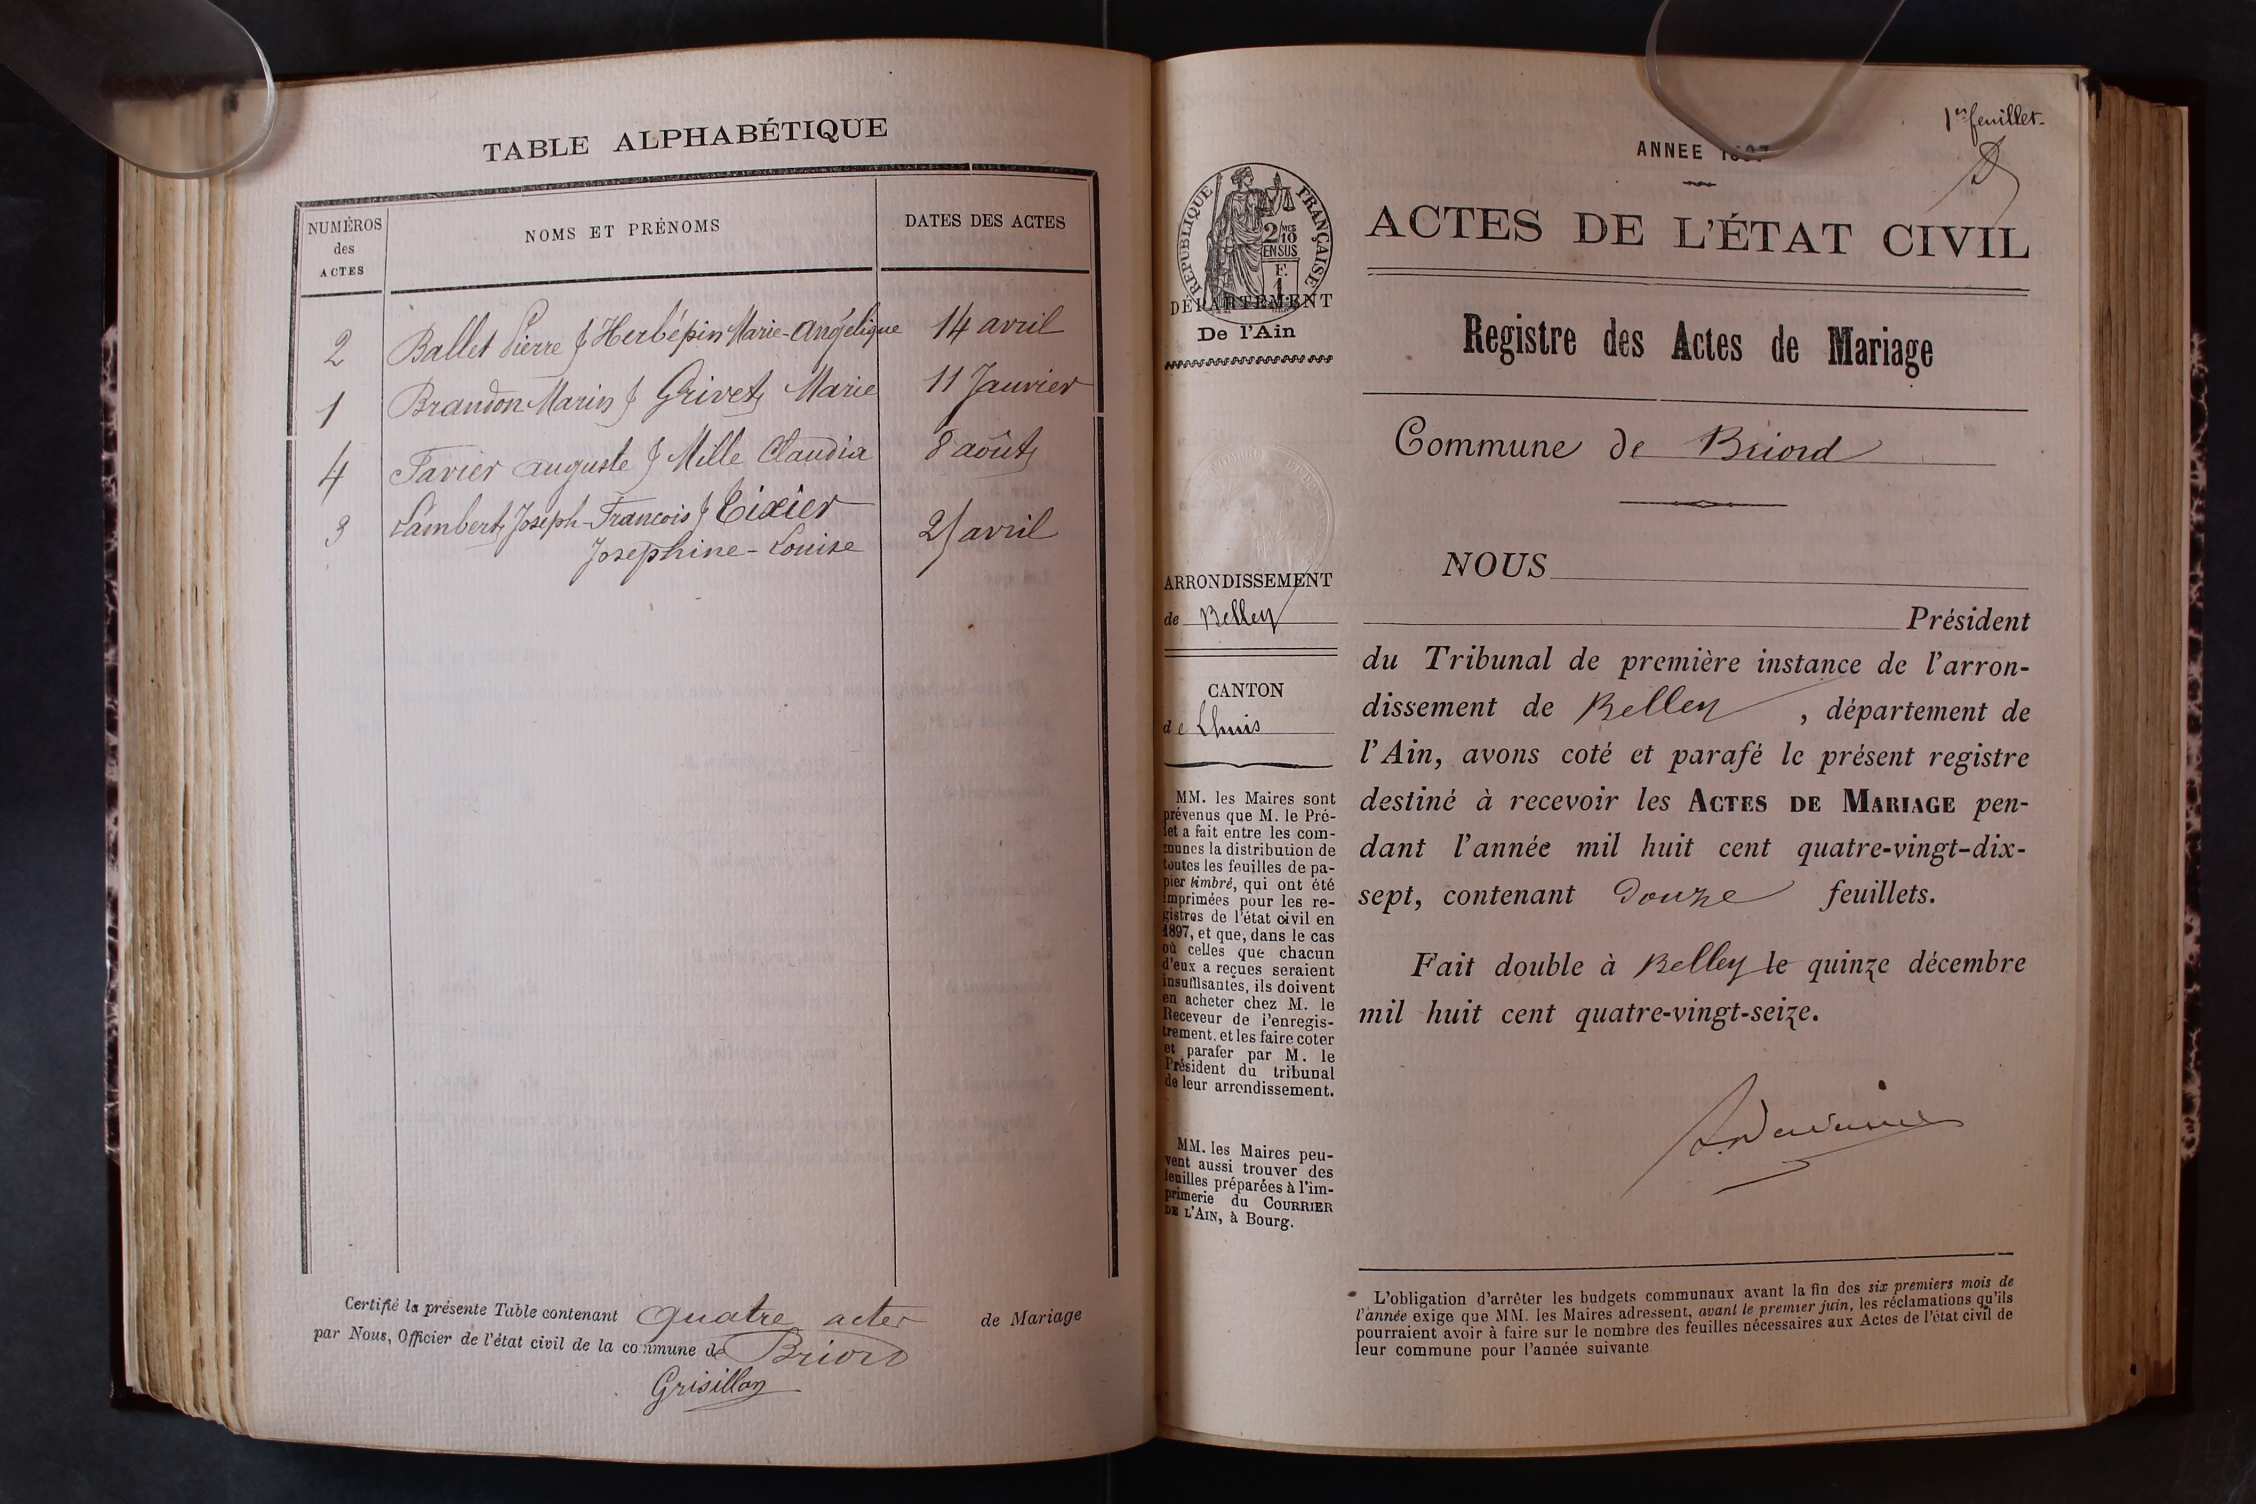 TABLE ALPHABÉTIQUE
NUMÉROS des ACTES
NOMS ET PRÉNOMS
DATES DES ACTES
2 Ballet Pierre & Herbépin Marie-Angélique 14 avril
1 Brandon Marin & Grivet Marie 11 Janvier
4 Favier auguste & Mille Claudia 8 août
3 Lambert Joseph-Francois & Tixier
Josephine-Louise avril
Certifié la présente Table contenant quatre actes de Mariage
par Nous, Officier de l'état civil de la commune de Briord
Grisillon
1er feuillet.
ANNEE 1897
RÉPUBLIQUE FRANÇAISE
2/10
EN SUS
F.
1
DÉPARTEMENT
De l'Ain
ARRONDISSEMENT
de Belley
CANTON
de Lhuis
MM. les Maires sont
prévenus que M. le Pré-
fet a fait entre les com-
munes la distribution de
toutes les feuilles de pa-
pier timbré, qui ont été
imprimées pour les re-
gistres de l'état civil en
1897, et que, dans le cas
où celles que chacun
d'eux a reçues seraient
insuffisantes, ils doivent
en acheter chez M. le
Receveur de l'enregis-
trement, et les faire coter
et parafer par M. le
Président du tribunal
de leur arrondissement.
MM. les Maires peu-
vent aussi trouver des
feuilles préparées à l'im-
primerie du COURRIER
DE L'AIN, à Bourg.
ACTES DE L'ÉTAT CIVIL
Registre des Actes de Mariage
Commune de Briord
NOUS
Président
du Tribunal de première instance de l'arron-
dissement de Belley, département de
l'Ain, avons coté et parafé le présent registre
destiné à recevoir les ACTES DE MARIAGE pen-
dant l'année mil huit cent quatre-vingt-dix-
sept, contenant Douze feuillets.
Fait double à Belley le quinze décembre
mil huit cent quatre-vingt-seize.
L'obligation d'arrêter les budgets communaux avant la fin des six premiers mois de
l'année exige que MM. les Maires adressent, avant le premier juin, les réclamations qu'ils
pourraient avoir à faire sur le nombre des feuilles nécessaires aux Actes de l'état civil de
leur commune pour l'année suivante